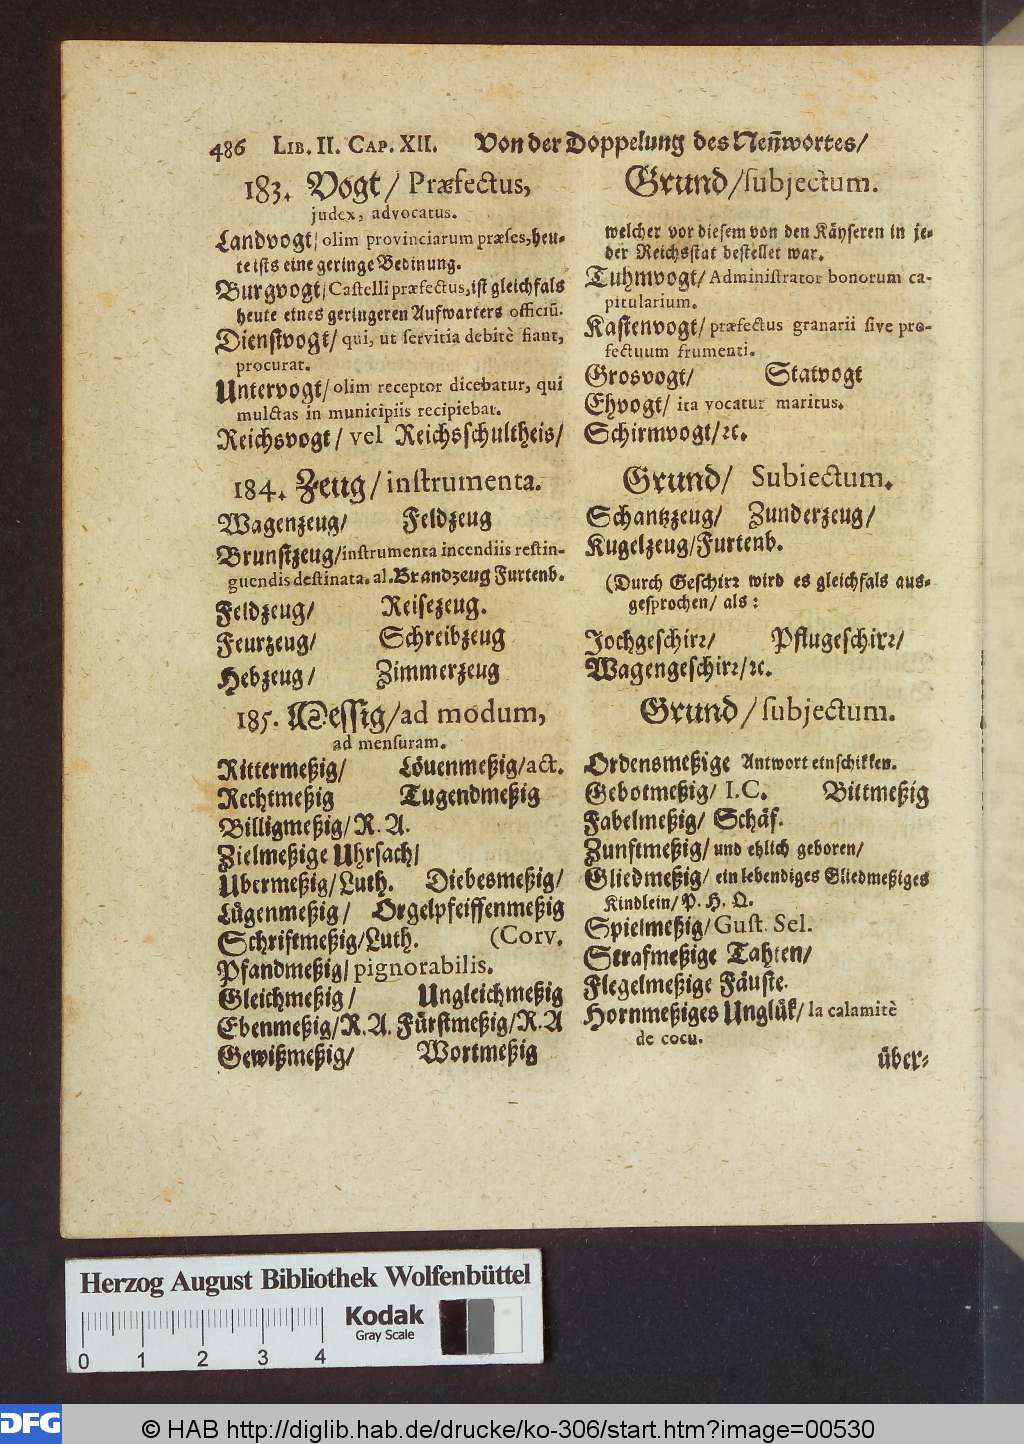 486 LIB. II. CAP. XII. Von der Doppelung des Neñwortes/
183. Vogt/ Præfectus,
judex, advocatus.
Landvogt/ olim provinciarum præses, heu-
te ists eine geringe Bedinung.
Burgvogt/ Castelli præfectus, ist gleichfals
heute eines geringeren Aufwarters officiũ.
Dienstvogt/ qui, ut servitia debitè fiant,
procurat.
Untervogt/ olim receptor dicebatur, qui
mulctas in municipiis recipiebat.
Reichsvogt/ vel Reichsschultheis/
184. Zeug/ instrumenta.
Wagenzeug/ Feldzeug
Brunstzeug/ instrumenta incendiis restin-
guendis destinata. al. Brandzeug Furtenb.
Feldzeug/ Reisezeug.
Feurzeug/ Schreibzeug
Hebzeug/ Zimmerzeug
185. Messig/ ad modum,
ad mensuram.
Rittermeßig/ Löuenmeßig/ act.
Rechtmeßig Tugendmeßig
Billigmeßig/ R. A.
Zielmeßige Uhrsach/
Ubermeßig/ Luth. Diebesmeßig/
Lügenmeßig/ Orgelpfeiffenmeßig
Schriftmeßig/ Luth. (Corv.
Pfandmeßig/ pignorabilis.
Gleichmeßig/ Ungleichmeßig
Ebenmeßig/ R. A. Fürstmeßig/ R. A
Gewißmeßig/ Wortmeßig
Grund/ subjectum.
welcher vor diesem von den Käyseren in je-
der Reichsstat bestellet war.
Tuhmvogt/ Administrator bonorum ca-
pitularium.
Kastenvogt/ præfectus granarii sive pro-
fectuum frumenti.
Grosvogt/ Statvogt
Ehvogt/ ita vocatur maritus.
Schirmvogt/ ꝛc.
Grund/ Subiectum.
Schantzzeug/ Zunderzeug/
Kugelzeug/ Furtenb.
(Durch Geschirꝛ wird es gleichfals aus-
gesprochen/ als:
Jochgeschirꝛ/ Pflugeschirꝛ/
Wagengeschirꝛ/ ꝛc.
Grund/ subjectum.
Ordensmeßige Antwort einschikken.
Gebotmeßig/ I. C. Bittmeßig
Fabelmeßig/ Schäf.
Zunftmeßig/ und ehlich geboren/
Gliedmeßig/ ein lebendiges Gliedmeßiges
Kindlein/ P. H. O.
Spielmeßig/ Gust. Sel.
Strafmeßige Tahten/
Flegelmeßige Fäuste.
Hornmeßiges Unglük/ la calamitè
de cocu.
über-
Herzog August Bibliothek Wolfenbüttel
Kodak
Gray Scale
0 1 2 3 4
DFG
© HAB http://diglib.hab.de/drucke/ko-306/start.htm?image=00530